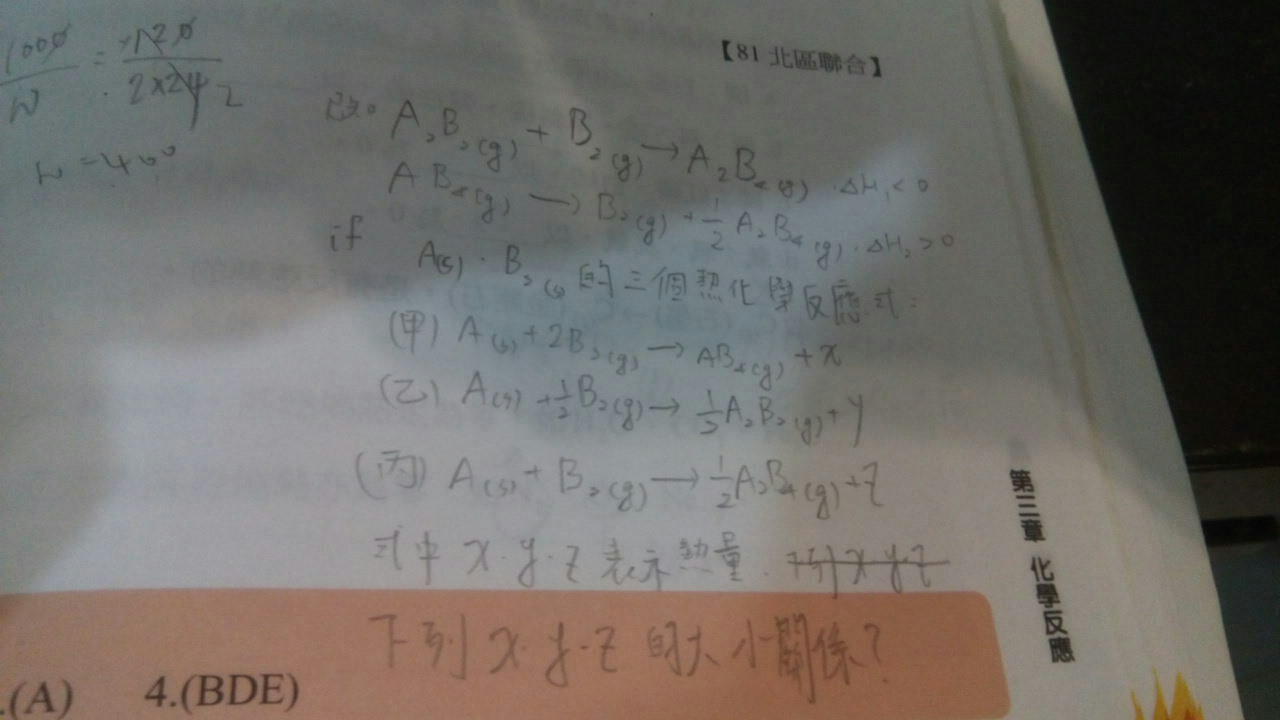 【81 北區聯合】
1000/w = 120/2×24 2
w = 400
已知 A₂B₂(g) + B₂(g) → A₂B₄(g) , ΔH₁ < 0
AB₄(g) → B₂(g) + 1/2 A₂B₄(g) , ΔH₂ > 0
if A(s)、B₂(g) 的三個熱化學反應式:
(甲) A(s) + 2B₂(g) → AB₄(g) + x
(乙) A(s) + 1/2 B₂(g) → 1/2 A₂B₂(g) + y
(丙) A(s) + B₂(g) → 1/2 A₂B₄(g) + z
式中 x、y、z 表示熱量. 下列 x y z
下列 x、y、z 的大小關係?
.(A) 4.(BDE)
第三章 化學反應